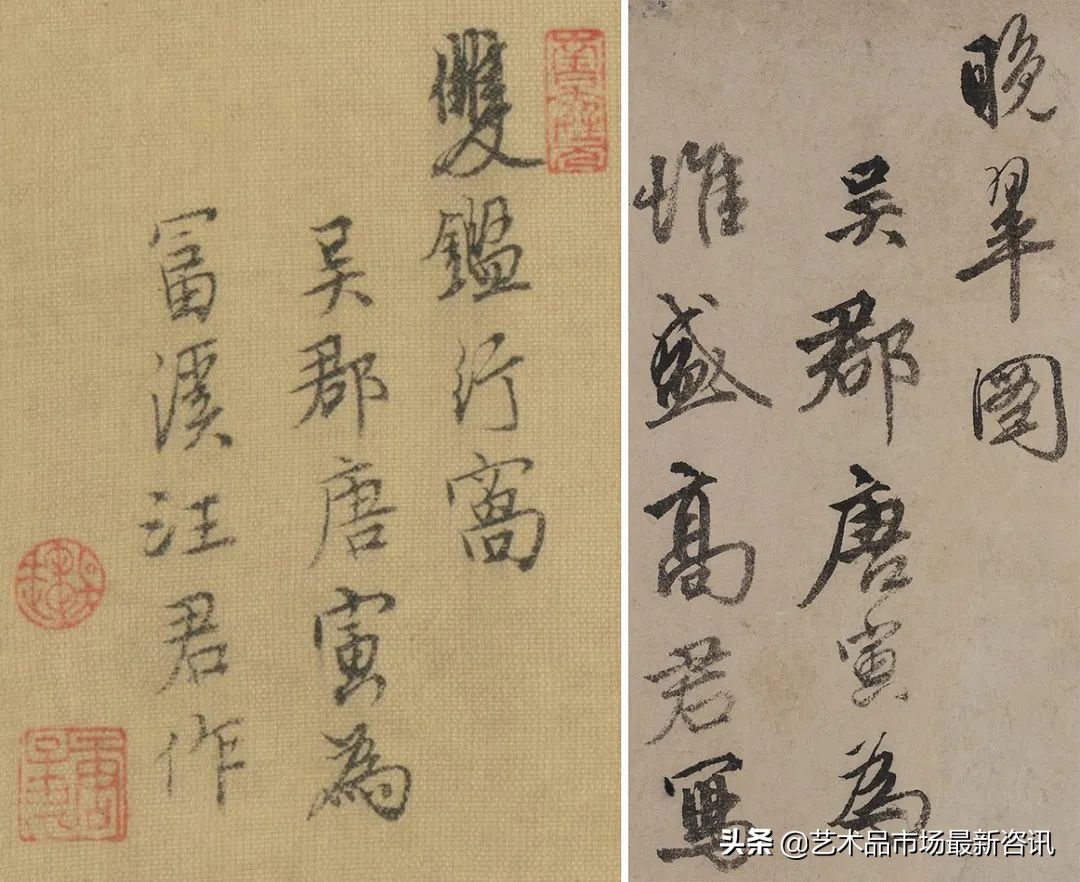 雙鑑行窩
吳郡唐寅為
富溪汪君作
晚翠圖
吳郡唐寅為
惟盛高君寫
头条 @艺术品市场最新咨讯